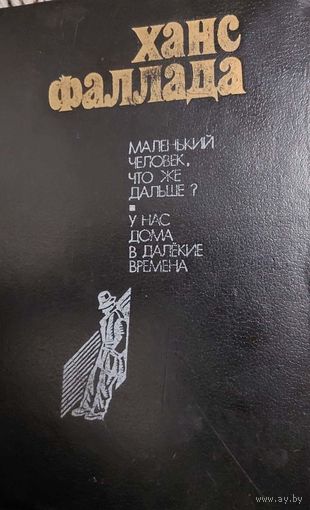 ханс
фаллада
МАЛЕНЬКИЙ
ЧЕЛОВЕК,
ЧТО ЖЕ
ДАЛЬШЕ?
У НАС
ДОМА
В ДАЛЁКИЕ
ВРЕМЕНА
www.ay.by